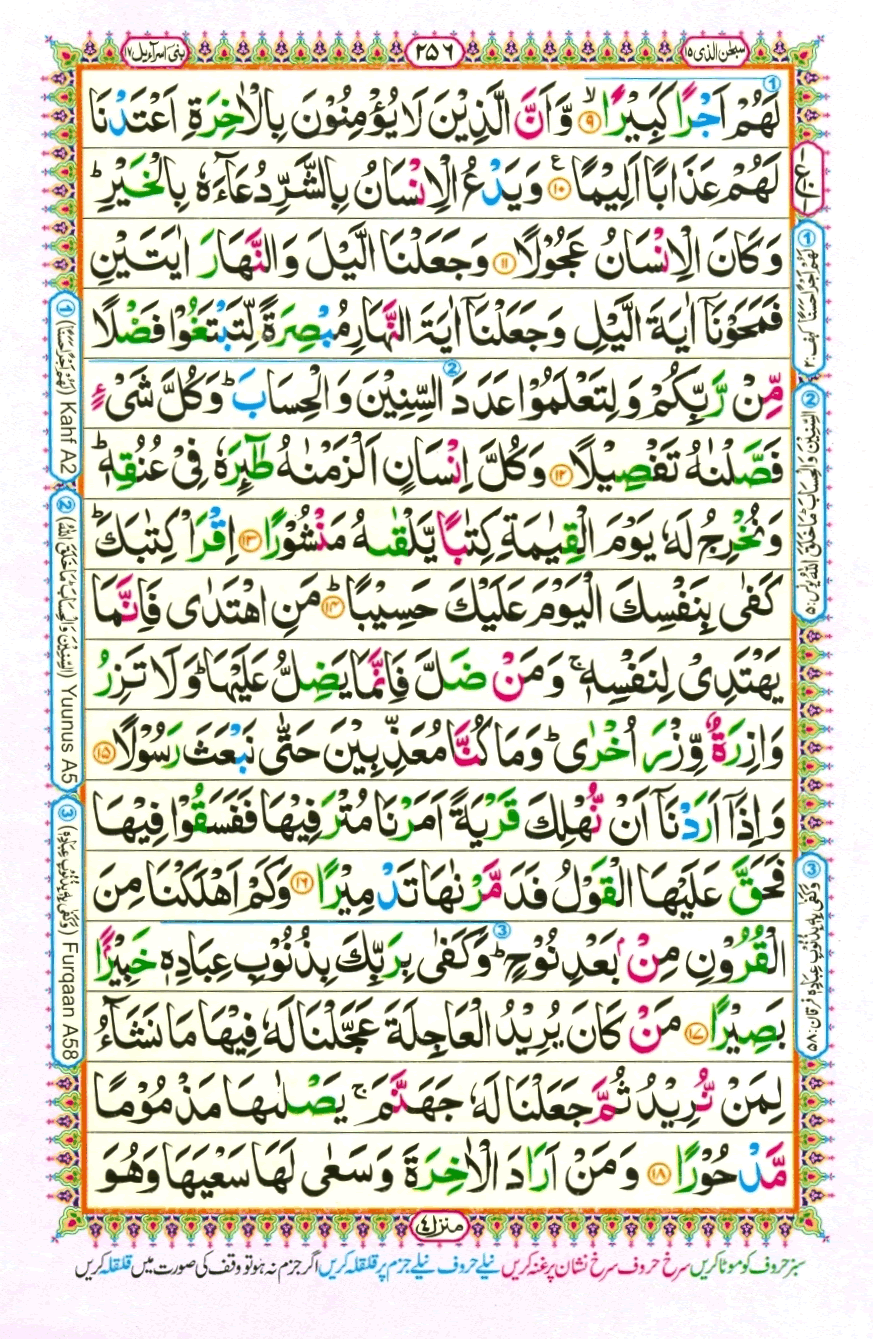 سبحٰن الذی ۱۵
۲۵۶
بنی اسرآءیل ۱۷
لَهُمْ اَجْرًا كَبِيْرًا ۙ﴿۹﴾ وَّاَنَّ الَّذِيْنَ لَا يُؤْمِنُوْنَ بِالْاٰخِرَةِ اَعْتَدْنَا
لَهُمْ عَذَابًا اَلِيْمًا ﴿۱۰﴾ع وَيَدْعُ الْاِنْسَانُ بِالشَّرِّ دُعَآءَهٗ بِالْخَيْرِ ؕ
وَكَانَ الْاِنْسَانُ عَجُوْلًا ﴿۱۱﴾ وَجَعَلْنَا الَّيْلَ وَالنَّهَارَ اٰيَتَيْنِ
فَمَحَوْنَاۤ اٰيَةَ الَّيْلِ وَجَعَلْنَاۤ اٰيَةَ النَّهَارِ مُبْصِرَةً لِّتَبْتَغُوْا فَضْلًا
مِّنْ رَّبِّكُمْ وَلِتَعْلَمُوْا عَدَدَ السِّنِيْنَ وَالْحِسَابَ ؕ وَكُلَّ شَىْءٍ
فَصَّلْنٰهُ تَفْصِيْلًا ﴿۱۲﴾ وَكُلَّ اِنْسَانٍ اَلْزَمْنٰهُ طٰٓئِرَهٗ فِىْ عُنُقِهٖ ؕ
وَنُخْرِجُ لَهٗ يَوْمَ الْقِيٰمَةِ كِتٰبًا يَّلْقٰىهُ مَنْشُوْرًا ﴿۱۳﴾ اِقْرَاْ كِتٰبَكَ ؕ
كَفٰى بِنَفْسِكَ الْيَوْمَ عَلَيْكَ حَسِيْبًا ؕ﴿۱۴﴾ مَنِ اهْتَدٰى فَاِنَّمَا
يَهْتَدِىْ لِنَفْسِهٖ ۚ وَمَنْ ضَلَّ فَاِنَّمَا يَضِلُّ عَلَيْهَا ؕ وَلَا تَزِرُ
وَازِرَةٌ وِّزْرَ اُخْرٰى ؕ وَمَا كُنَّا مُعَذِّبِيْنَ حَتّٰى نَبْعَثَ رَسُوْلًا ﴿۱۵﴾
وَاِذَاۤ اَرَدْنَاۤ اَنْ نُّهْلِكَ قَرْيَةً اَمَرْنَا مُتْرَفِيْهَا فَفَسَقُوْا فِيْهَا
فَحَقَّ عَلَيْهَا الْقَوْلُ فَدَمَّرْنٰهَا تَدْمِيْرًا ﴿۱۶﴾ وَكَمْ اَهْلَكْنَا مِنَ
الْقُرُوْنِ مِنْۢ بَعْدِ نُوْحٍ ؕ وَكَفٰى بِرَبِّكَ بِذُنُوْبِ عِبَادِهٖ خَبِيْرًۢا
بَصِيْرًا ﴿۱۷﴾ مَنْ كَانَ يُرِيْدُ الْعَاجِلَةَ عَجَّلْنَا لَهٗ فِيْهَا مَا نَشَآءُ
لِمَنْ نُّرِيْدُ ثُمَّ جَعَلْنَا لَهٗ جَهَنَّمَ ۚ يَصْلٰىهَا مَذْمُوْمًا
مَّدْحُوْرًا ﴿۱۸﴾ وَمَنْ اَرَادَ الْاٰخِرَةَ وَسَعٰى لَهَا سَعْيَهَا وَهُوَ
① لَهُمْ اَجْرًا حَسَنًا كهف:۲
② السِّنِيْنَ وَالْحِسَابَ ؕ مَا خَلَقَ اللّٰهُ يونس:۵
③ وَكَفٰى بِهٖ بِذُنُوْبِ عِبَادِهٖ فرقان:۵۸
① (لَهُمْ اَجْرًا حَسَنًا) Kahf A2
② (السِّنِيْنَ وَالْحِسَابَ ؕ مَا خَلَقَ اللّٰهُ) Yuunus A5
③ (وَكَفٰى بِهٖ بِذُنُوْبِ عِبَادِهٖ) Furqaan A58
منزل ۴
سبز حروف کو موٹا کریں سرخ حروف سرخ نشان پر غنہ کریں نیلے حروف نیلے جزم پر قلقلہ کریں اگر جزم نہ ہو تو وقف کی صورت میں قلقلہ کریں